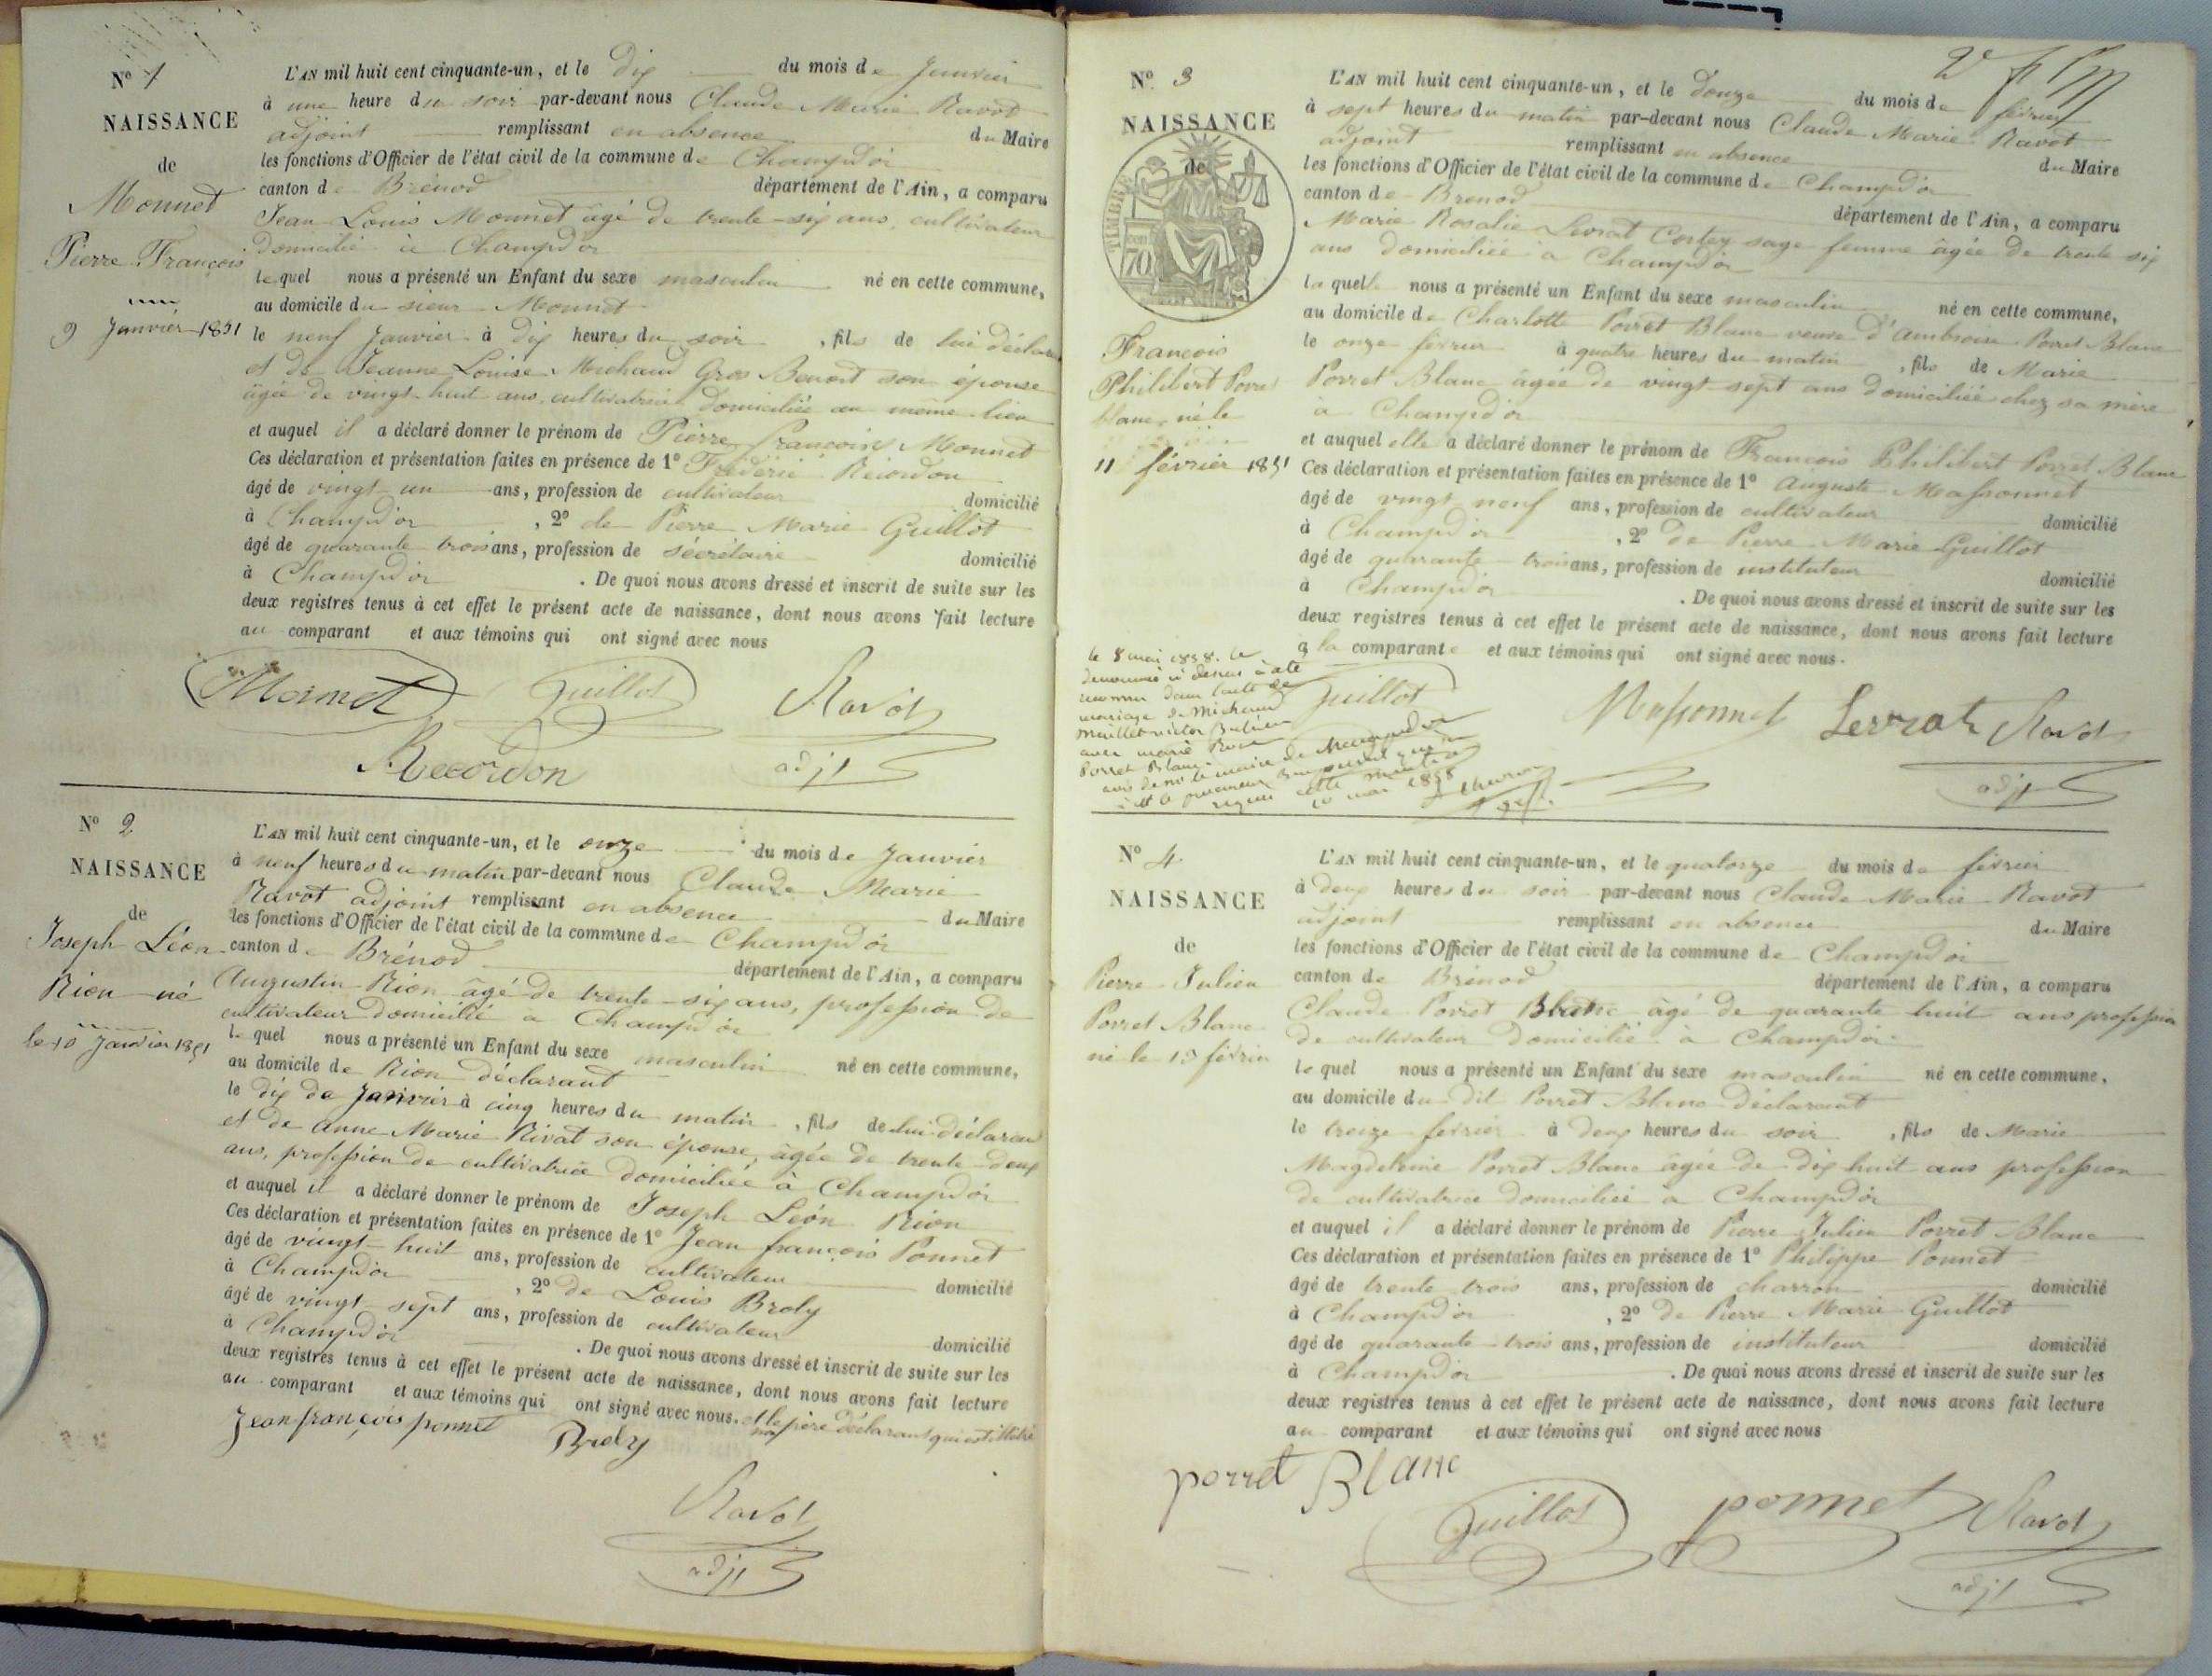 N° 1
NAISSANCE
de
Monnet
Pierre François
9 Janvier 1851
L'AN mil huit cent cinquante-un, et le dix du mois de Janvier
à une heure du soir par-devant nous Claude Marie Ravot
adjoint remplissant en absence du Maire
les fonctions d'Officier de l'état civil de la commune de Champdor
canton de Brénod département de l'Ain, a comparu
Jean Louis Monnet âgé de trente-six ans, cultivateur
domicilié à Champdor
lequel nous a présenté un Enfant du sexe masculin né en cette commune,
au domicile du sieur Monnet
le neuf Janvier à dix heures du soir, fils de lui déclarant
et de Jeanne Louise Michaud Gros Benoit son épouse
âgée de vingt-huit ans, cultivatrice domiciliée au même lieu
et auquel il a déclaré donner le prénom de Pierre François Monnet
Ces déclaration et présentation faites en présence de 1° Fréderic Récordon
âgé de vingt-un ans, profession de cultivateur domicilié
à Champdor, 2° de Pierre Marie Guillot
âgé de quarante trois ans, profession de sécrétaire domicilié
à Champdor. De quoi nous avons dressé et inscrit de suite sur les
deux registres tenus à cet effet le présent acte de naissance, dont nous avons fait lecture
au comparant et aux témoins qui ont signé avec nous
Monnet Guillot Ravot
Recordon adjt
N° 2
NAISSANCE
de
Joseph Léon
Rion né
le 10 Janvier 1851
L'AN mil huit cent cinquante-un, et le onze du mois de Janvier
à neuf heures du matin par-devant nous Claude Marie
Ravot adjoint remplissant en absence du Maire
les fonctions d'Officier de l'état civil de la commune de Champdor
canton de Brénod département de l'Ain, a comparu
Augustin Rion âgé de trente-six ans, profession de
cultivateur domicilié à Champdor
lequel nous a présenté un Enfant du sexe masculin né en cette commune,
au domicile de Rion déclarant
le dix de Janvier à cinq heures du matin, fils de lui déclarant
et de Anne Marie Rivat son épouse, âgée de trente-deux
ans, profession de cultivatrice domiciliée à Champdor
et auquel il a déclaré donner le prénom de Joseph Léon Rion
Ces déclaration et présentation faites en présence de 1° Jean françois Ponnet
âgé de vingt-huit ans, profession de cultivateur domicilié
à Champdor, 2° de Louis Broly
âgé de vingt sept ans, profession de cultivateur domicilié
à Champdor. De quoi nous avons dressé et inscrit de suite sur les
deux registres tenus à cet effet le présent acte de naissance, dont nous avons fait lecture
au comparant et aux témoins qui ont signé avec nous. et non le père déclarant qui est illitéré
Jean françois ponnet Broly
Ravot
adjt
N° 3
NAISSANCE
de
TIMBRE
70
François
Philibert Porret
blanc né le
11 février 1851
L'AN mil huit cent cinquante-un, et le douze du mois de février
à sept heures du matin par-devant nous Claude Marie Ravot
adjoint remplissant en absence du Maire
les fonctions d'Officier de l'état civil de la commune de Champdor
canton de Brenod département de l'Ain, a comparu
Marie Rosalie Levrat Cortey sage femme âgée de trente six
ans domiciliée à Champdor
laquelle nous a présenté un Enfant du sexe masculin né en cette commune,
au domicile de Charlotte Porret Blanc veuve d'Ambroise Porret Blanc
le onze février à quatre heures du matin, fils de Marie
Porret Blanc âgée de vingt-sept ans domiciliée chez sa mère
à Champdor
et auquel elle a déclaré donner le prénom de François Philibert Porret Blanc
Ces déclaration et présentation faites en présence de 1° Auguste Massonnet
âgé de vingt neuf ans, profession de cultivateur domicilié
à Champdor, 2° de Pierre Marie Guillot
âgé de quarante-trois ans, profession de instituteur domicilié
à Champdor. De quoi nous avons dressé et inscrit de suite sur les
deux registres tenus à cet effet le présent acte de naissance, dont nous avons fait lecture
à la comparante et aux témoins qui ont signé avec nous.
le 8 mai 1858. le
dénommé ci dessus a été
reconnu dans l'acte de
mariage de Michaud
Maillet victor
avec marie
Porret Blanc
10 mai 1858
Guillot Massonnet Levrat Ravot
adjt
N° 4
NAISSANCE
de
Pierre Julien
Porret Blanc
né le 13 février
L'AN mil huit cent cinquante-un, et le quatorze du mois de février
à deux heures du soir par-devant nous Claude Marie Ravot
adjoint remplissant en absence du Maire
les fonctions d'Officier de l'état civil de la commune de Champdor
canton de Brénod département de l'Ain, a comparu
Claude Porret Blanc âgé de quarante huit ans profession
de cultivateur domicilié à Champdor
lequel nous a présenté un Enfant du sexe masculin né en cette commune,
au domicile du dit Porret Blanc déclarant
le treize février à deux heures du soir, fils de Marie
Magdeleine Porret Blanc âgée de dix huit ans profession
de cultivatrice domiciliée à Champdor
et auquel il a déclaré donner le prénom de Pierre Julien Porret Blanc
Ces déclaration et présentation faites en présence de 1° Philippe Ponnet
âgé de trente trois ans, profession de charron domicilié
à Champdor, 2° de Pierre Marie Guillot
âgé de quarante-trois ans, profession de instituteur domicilié
à Champdor. De quoi nous avons dressé et inscrit de suite sur les
deux registres tenus à cet effet le présent acte de naissance, dont nous avons fait lecture
au comparant et aux témoins qui ont signé avec nous
porret Blanc
Guillot ponnet Ravot
adjt